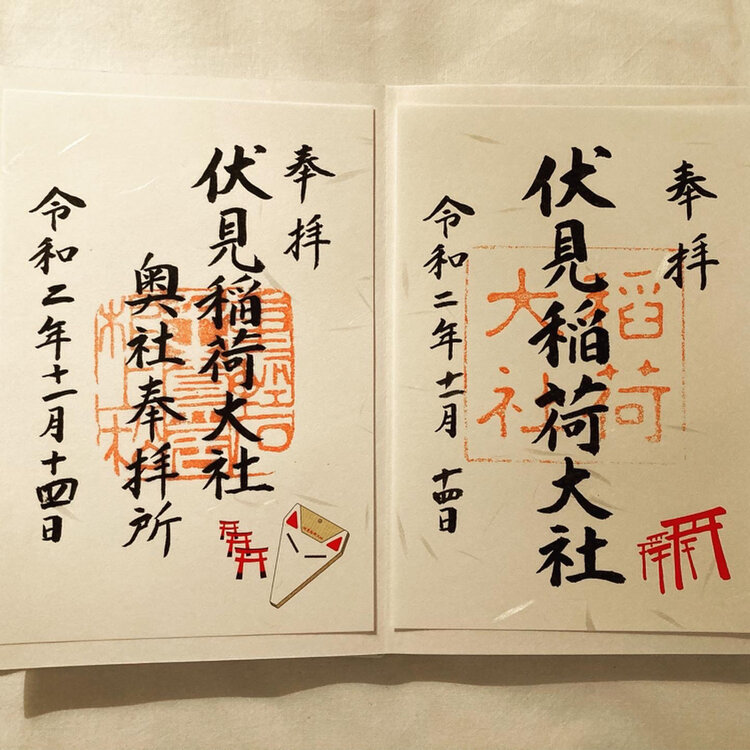 奉拝
伏見稲荷大社
稲荷
大社
令和二年十一月十四日
奉拝
伏見稲荷大社
奥社奉拝所
令和二年十一月十四日